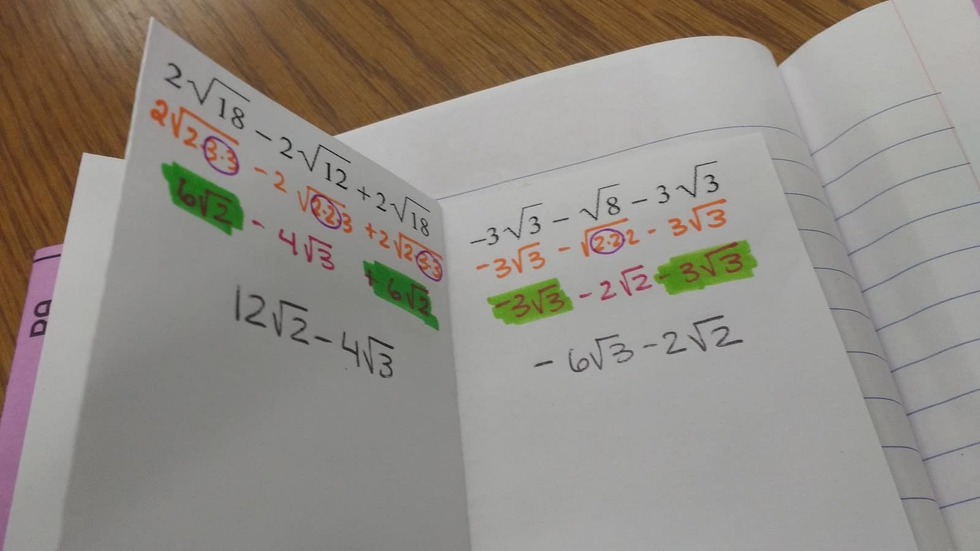 2√18 − 2√12 + 2√18
2√2 3·3 − 2√2·2 3 + 2√2 3·3
6√2 − 4√3 + 6√2
12√2 − 4√3
-3√3 − √8 − 3√3
-3√3 − √2·2 2 − 3√3
-3√3 − 2√2 − 3√3
-6√3 − 2√2